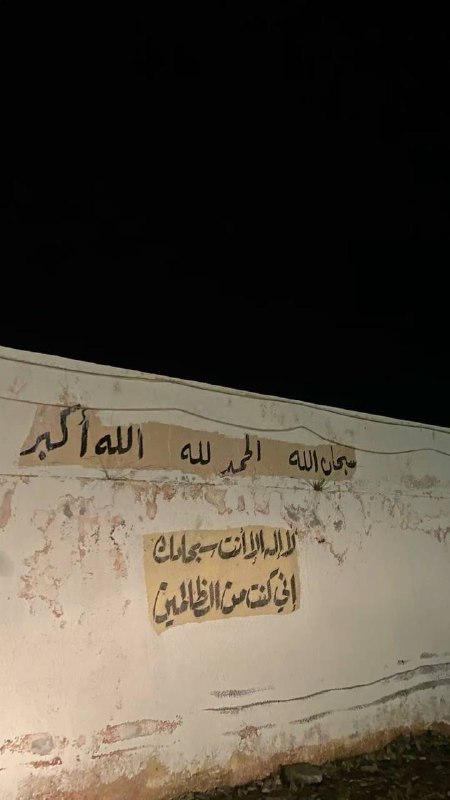 سبحان الله الحمد لله الله أكبر
لا اله إلا أنت سبحانك
إني كنت من الظالمين